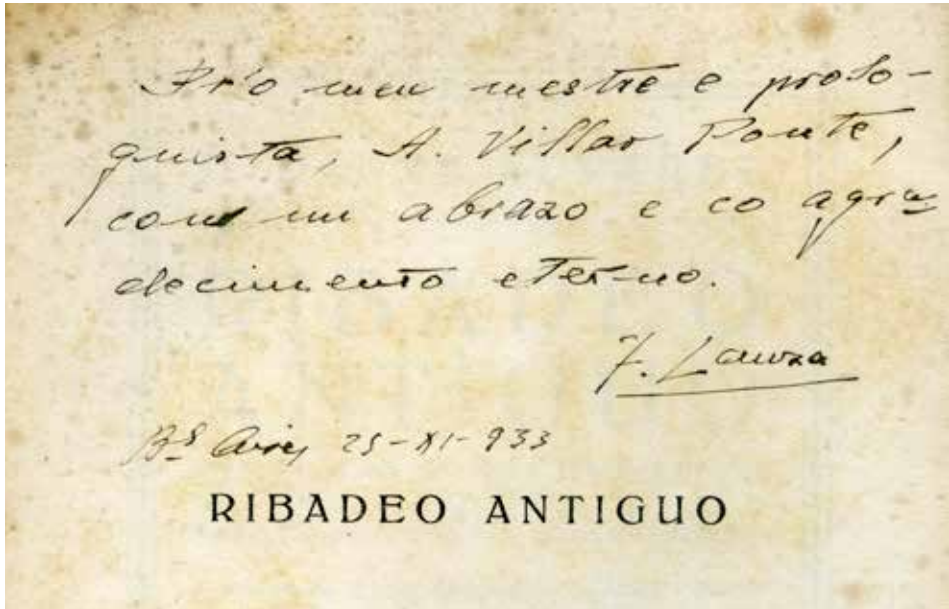 Pr'o meu mestre e prolo-
guista, A. Villar Ponte,
com um abrazo e co agra
decimento eterno.
F. Lanza
Bs Aires 25-XI-933
RIBADEO ANTIGUO